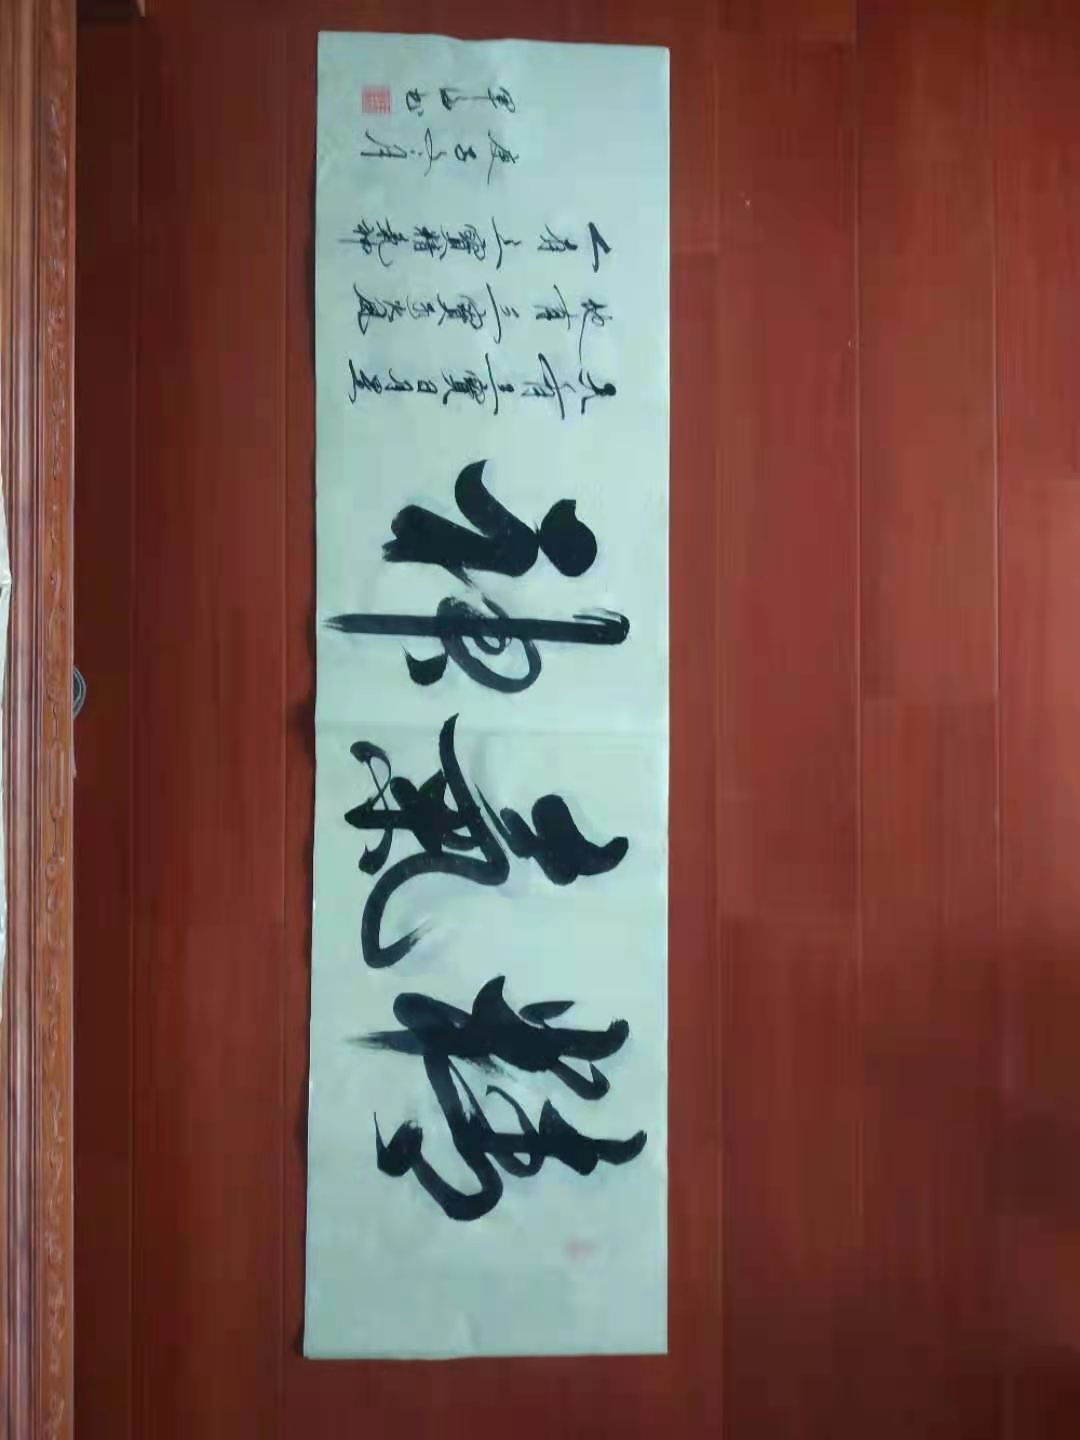 精氣神
天有三寶日月星
地有三寶水火風
人有三寶精氣神
庚子六月
軍山书